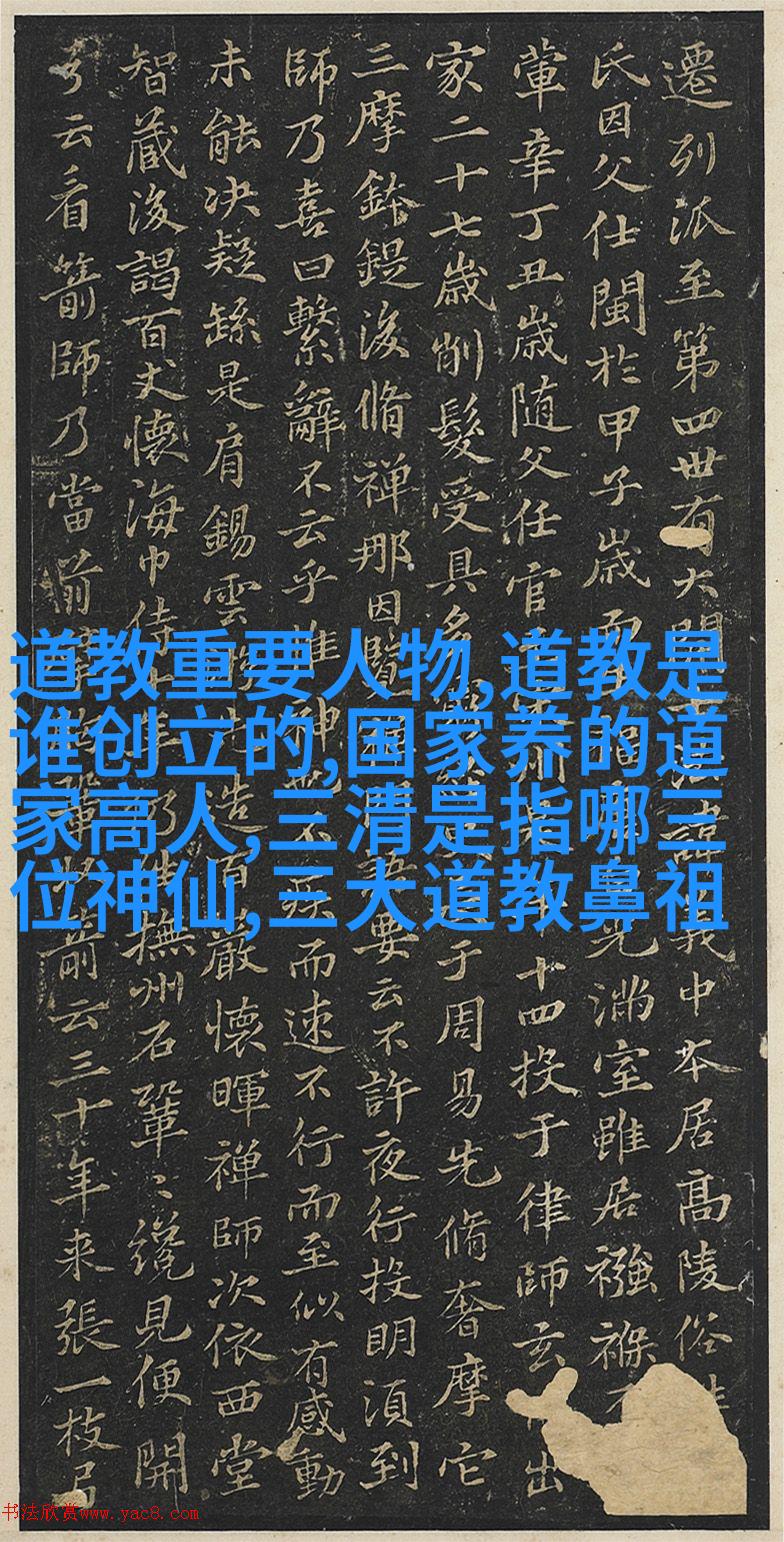 道教重要人物,道教是
谁创立的,国家养的道
家高人,三清是指哪三
位神仙,三大道教鼻祖
遷列派至第四世有大開 中本居高陵俗
氏因父仕閩於甲子歲 光滿室雖居襁褓
葷辛丁丑歲随父任官 十四投于律師玄 出
家二十七歲削髮受具多 于周易先脩奢摩它
三摩鉢鍉後脩禅那因覽 要云不許夜行投明須到
師乃喜曰繫辭不云乎惟神 不疾而速不行而至似有感動
未能决疑繇是肩錫雲 造百巖懷暉禅師次依西堂
智藏後謁百丈懷海巾侍 撫州石鞏〻纔見便開
弓云看箭師乃當前 箭云三十年来張一枝弓
书法欣赏www.yac8.com